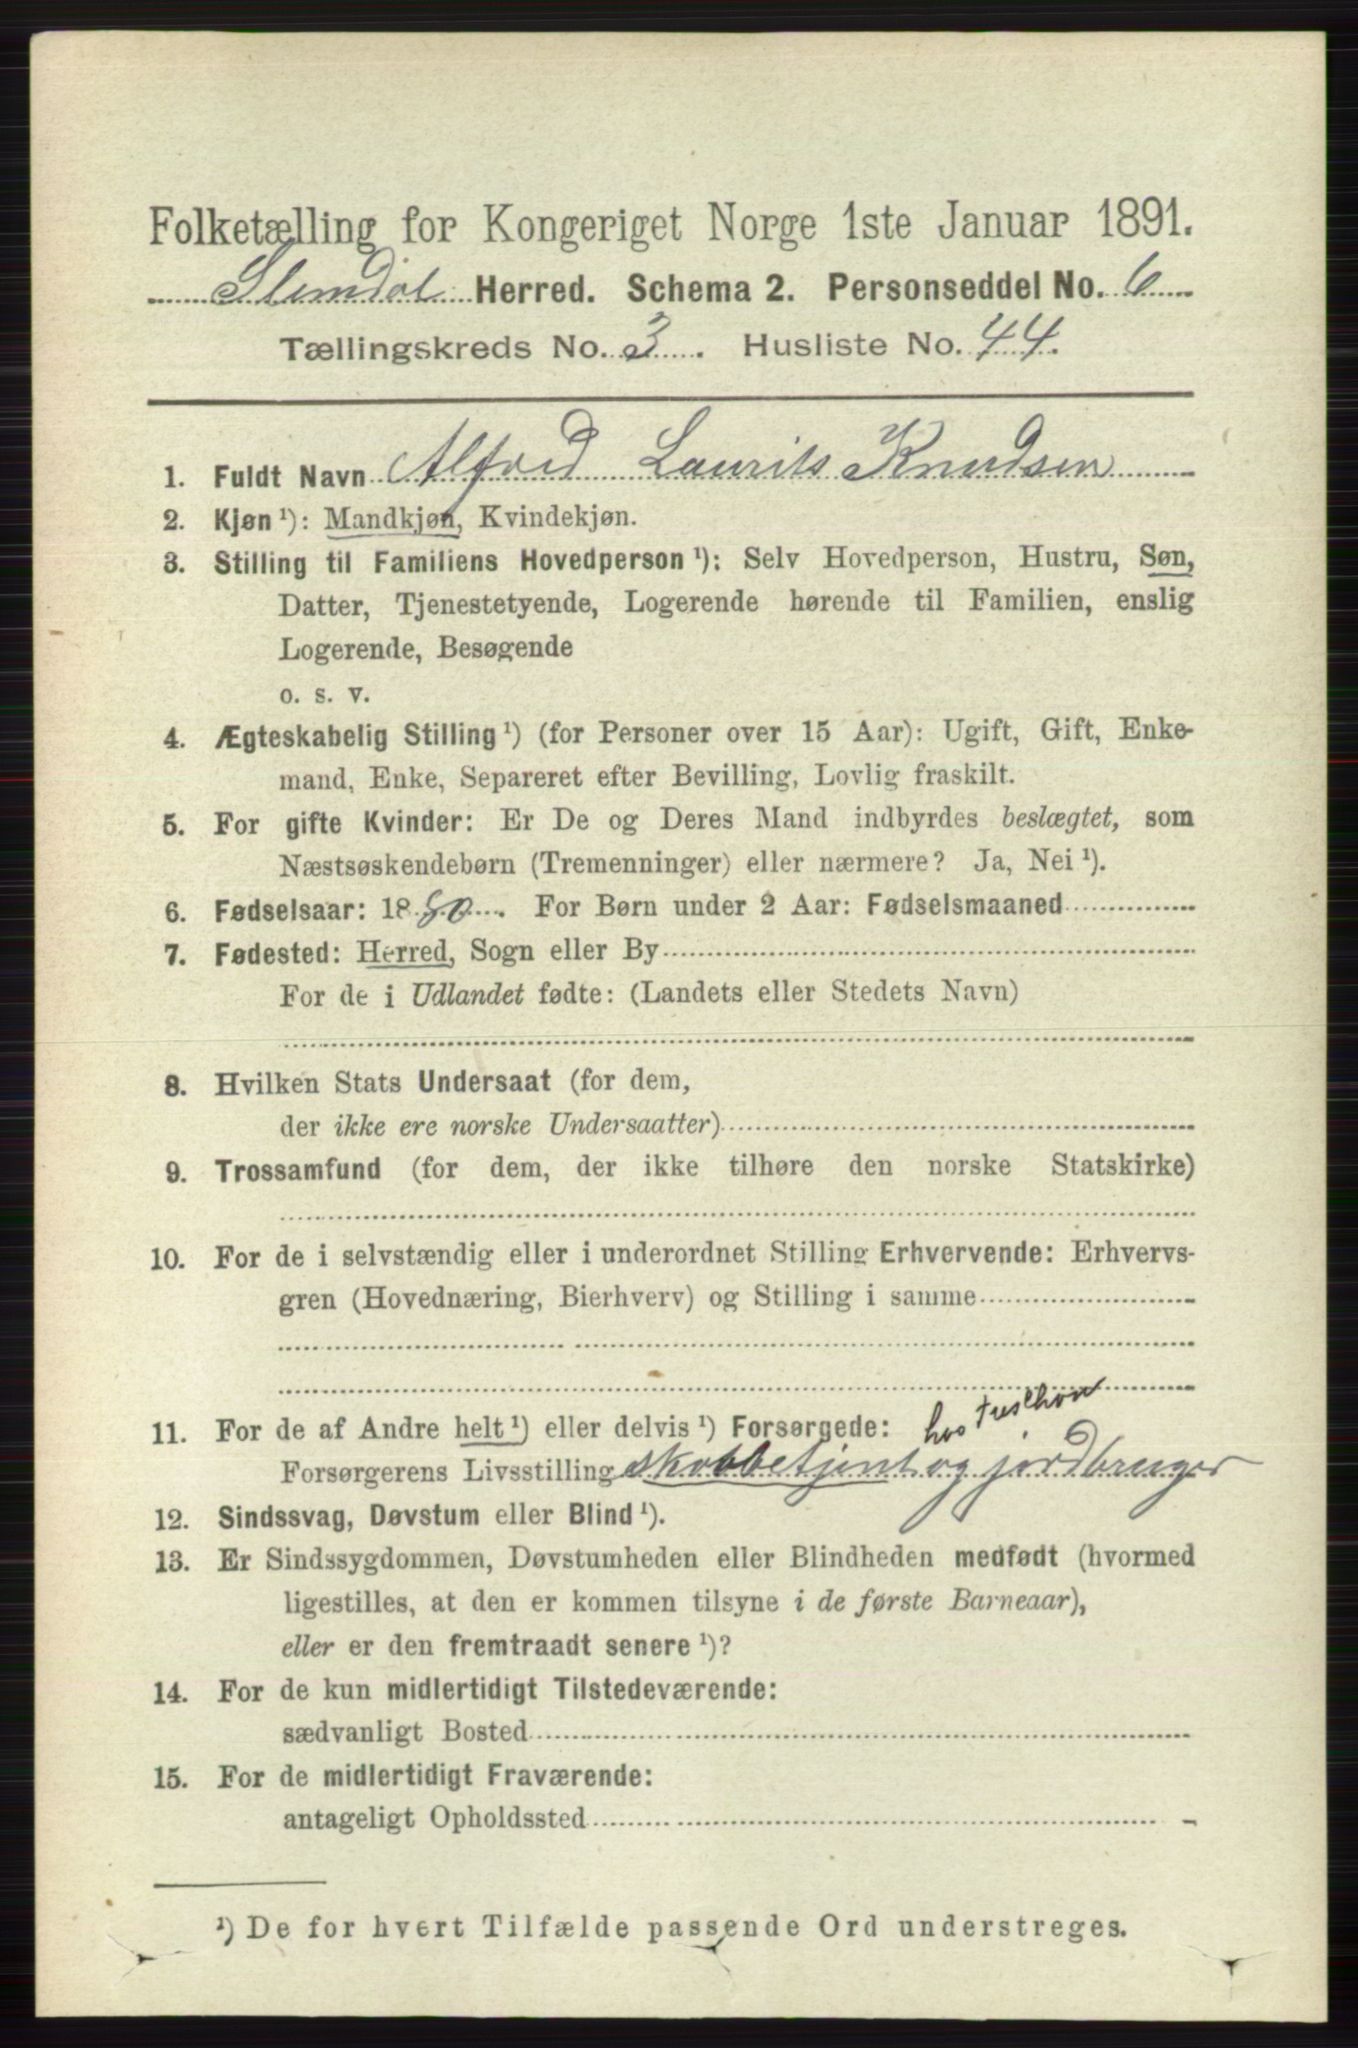 Folketælling for Kongeriget Norge 1ste Januar 1891.
Slemdal Herred. Schema 2. Personseddel No. 6
Tællingskreds No. 3. Husliste No. 44.
1. Fuldt Navn Alfred Laurits Knudsen
2. Kjøn ¹): Mandkjøn, Kvindekjøn.
3. Stilling til Familiens Hovedperson ¹): Selv Hovedperson, Hustru, Søn,
Datter, Tjenestetyende, Logerende hørende til Familien, enslig
Logerende, Besøgende
o. s. v.
4. Ægteskabelig Stilling ¹) (for Personer over 15 Aar): Ugift, Gift, Enke-
mand, Enke, Separeret efter Bevilling, Lovlig fraskilt.
5. For gifte Kvinder: Er De og Deres Mand indbyrdes beslægtet, som
Næstsøskendebørn (Tremenninger) eller nærmere? Ja, Nei ¹).
6. Fødselsaar: 1880. For Børn under 2 Aar: Fødselsmaaned
7. Fødested: Herred, Sogn eller By
For de i Udlandet fødte: (Landets eller Stedets Navn)
8. Hvilken Stats Undersaat (for dem,
der ikke ere norske Undersaatter)
9. Trossamfund (for dem, der ikke tilhøre den norske Statskirke)
10. For de i selvstændig eller i underordnet Stilling Erhvervende: Erhvervs-
gren (Hovednæring, Bierhverv) og Stilling i samme
11. For de af Andre helt ¹) eller delvis ¹) Forsørgede: hos
Forsørgerens Livsstilling og jordbruger
12. Sindssvag, Døvstum eller Blind ¹).
13. Er Sindssygdommen, Døvstumheden eller Blindheden medfødt (hvormed
ligestilles, at den er kommen tilsyne i de første Barneaar),
eller er den fremtraadt senere ¹)?
14. For de kun midlertidigt Tilstedeværende:
sædvanligt Bosted
15. For de midlertidigt Fraværende:
antageligt Opholdssted
¹) De for hvert Tilfælde passende Ord understreges.